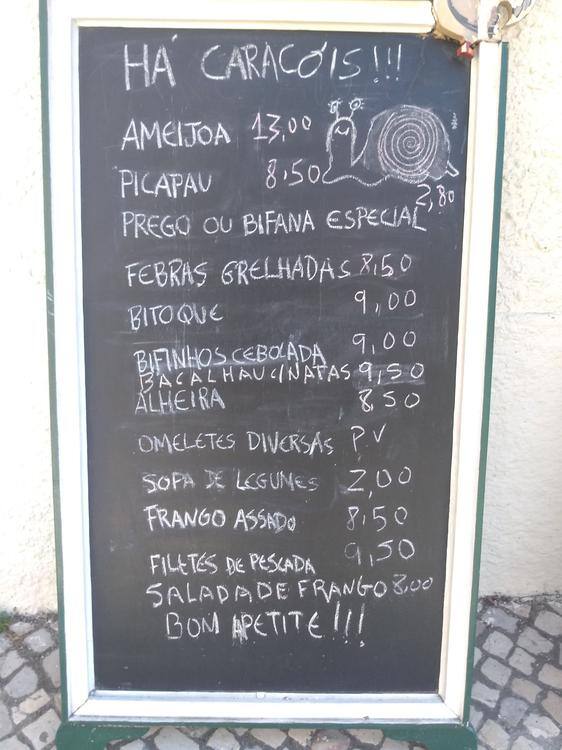 HÁ CARACÓIS!!!
AMEIJOA 13,00
PICAPAU 8,50
2,80
PREGO OU BIFANA ESPECIAL
FEBRAS GRELHADAS 8,50
BITOQUE 9,00
BIFINHOS CEBOLADA 9,00
BACALHAU C/NATAS 9,50
ALHEIRA 8,50
OMELETES DIVERSAS P.V
SOPA DE LEGUMES 2,00
FRANGO ASSADO 8,50
FILETES DE PESCADA 9,50
SALADA DE FRANGO 8,00
BOM APETITE!!!